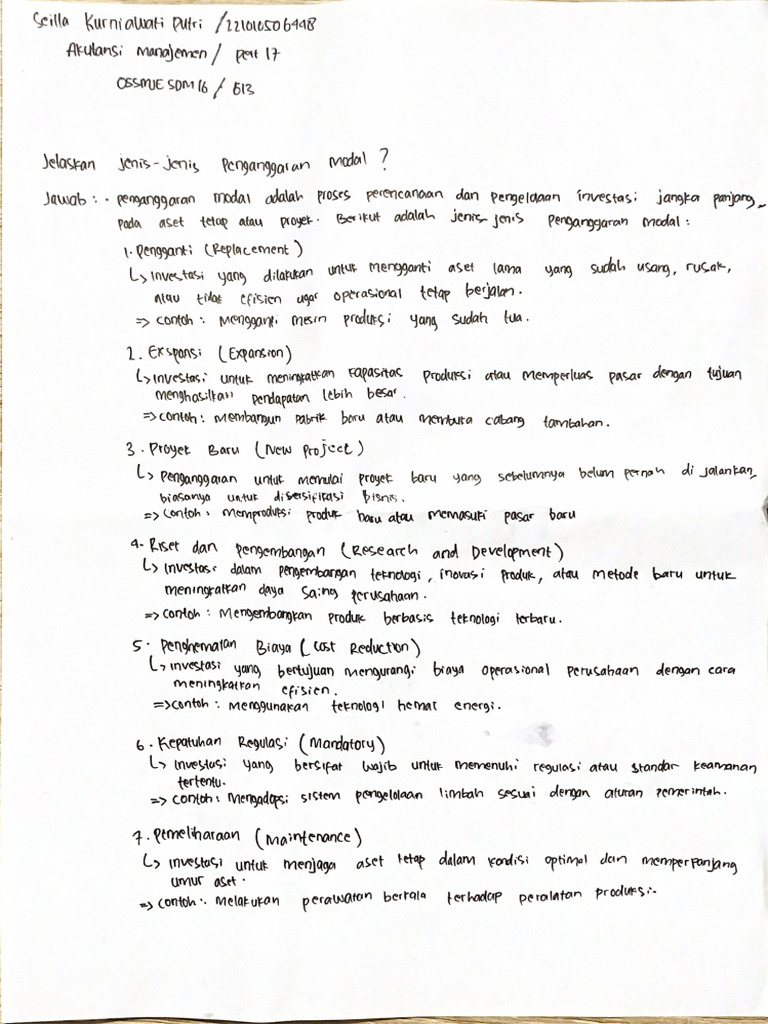 Seilla Kurniawati Putri / 221010506498
Akutansi Manajemen / pert 17
05SMJE SDM 16 / 513
Jelaskan jenis-jenis Penganggaran Modal ?
Jawab : • penganggaran modal adalah proses perencanaan dan pengelolaan investasi jangka panjang
pada aset tetap atau proyek. Berikut adalah jenis-jenis penganggaran modal :
1. Pengganti (Replacement)
↳ Investasi yang dilakukan untuk mengganti aset lama yang sudah usang, rusak,
atau tidak efisien agar operasional tetap berjalan.
=> contoh : Mengganti mesin produksi yang sudah tua.
2. Ekspansi (Expansion)
↳ Investasi untuk meningkatkan kapasitas produksi atau memperluas pasar dengan tujuan
menghasilkan pendapatan lebih besar.
=> contoh : Membangun pabrik baru atau membuka cabang tambahan.
3. Proyek Baru (New Project)
↳ Penganggaran untuk memulai proyek baru yang sebelumnya belum pernah di jalankan,
biasanya untuk disersifikasi bisnis.
=> contoh : memproduksi produk baru atau memasuki pasar baru
4. Riset dan pengembangan (Research and Development)
↳ Investasi dalam pengembangan teknologi, inovasi produk, atau metode baru untuk
meningkatkan daya saing perusahaan.
=> contoh : Mengembangkan produk berbasis teknologi terbaru.
5. Penghematan Biaya (Cost Reduction)
↳ investasi yang bertujuan mengurangi biaya operasional perusahaan dengan cara
meningkatkan efisien.
=> contoh : menggunakan teknologi hemat energi.
6. Kepatuhan Regulasi (Mandatory)
↳ Investasi yang bersifat wajib untuk memenuhi regulasi atau standar keamanan
tertentu.
=> contoh : Mengadopsi sistem pengelolaan limbah sesuai dengan aturan pemerintah.
7. Pemeliharaan (Maintenance)
↳ investasi untuk menjaga aset tetap dalam kondisi optimal dan memperpanjang
umur aset.
=> contoh : Melakukan perawatan berkala terhadap peralatan produksi.